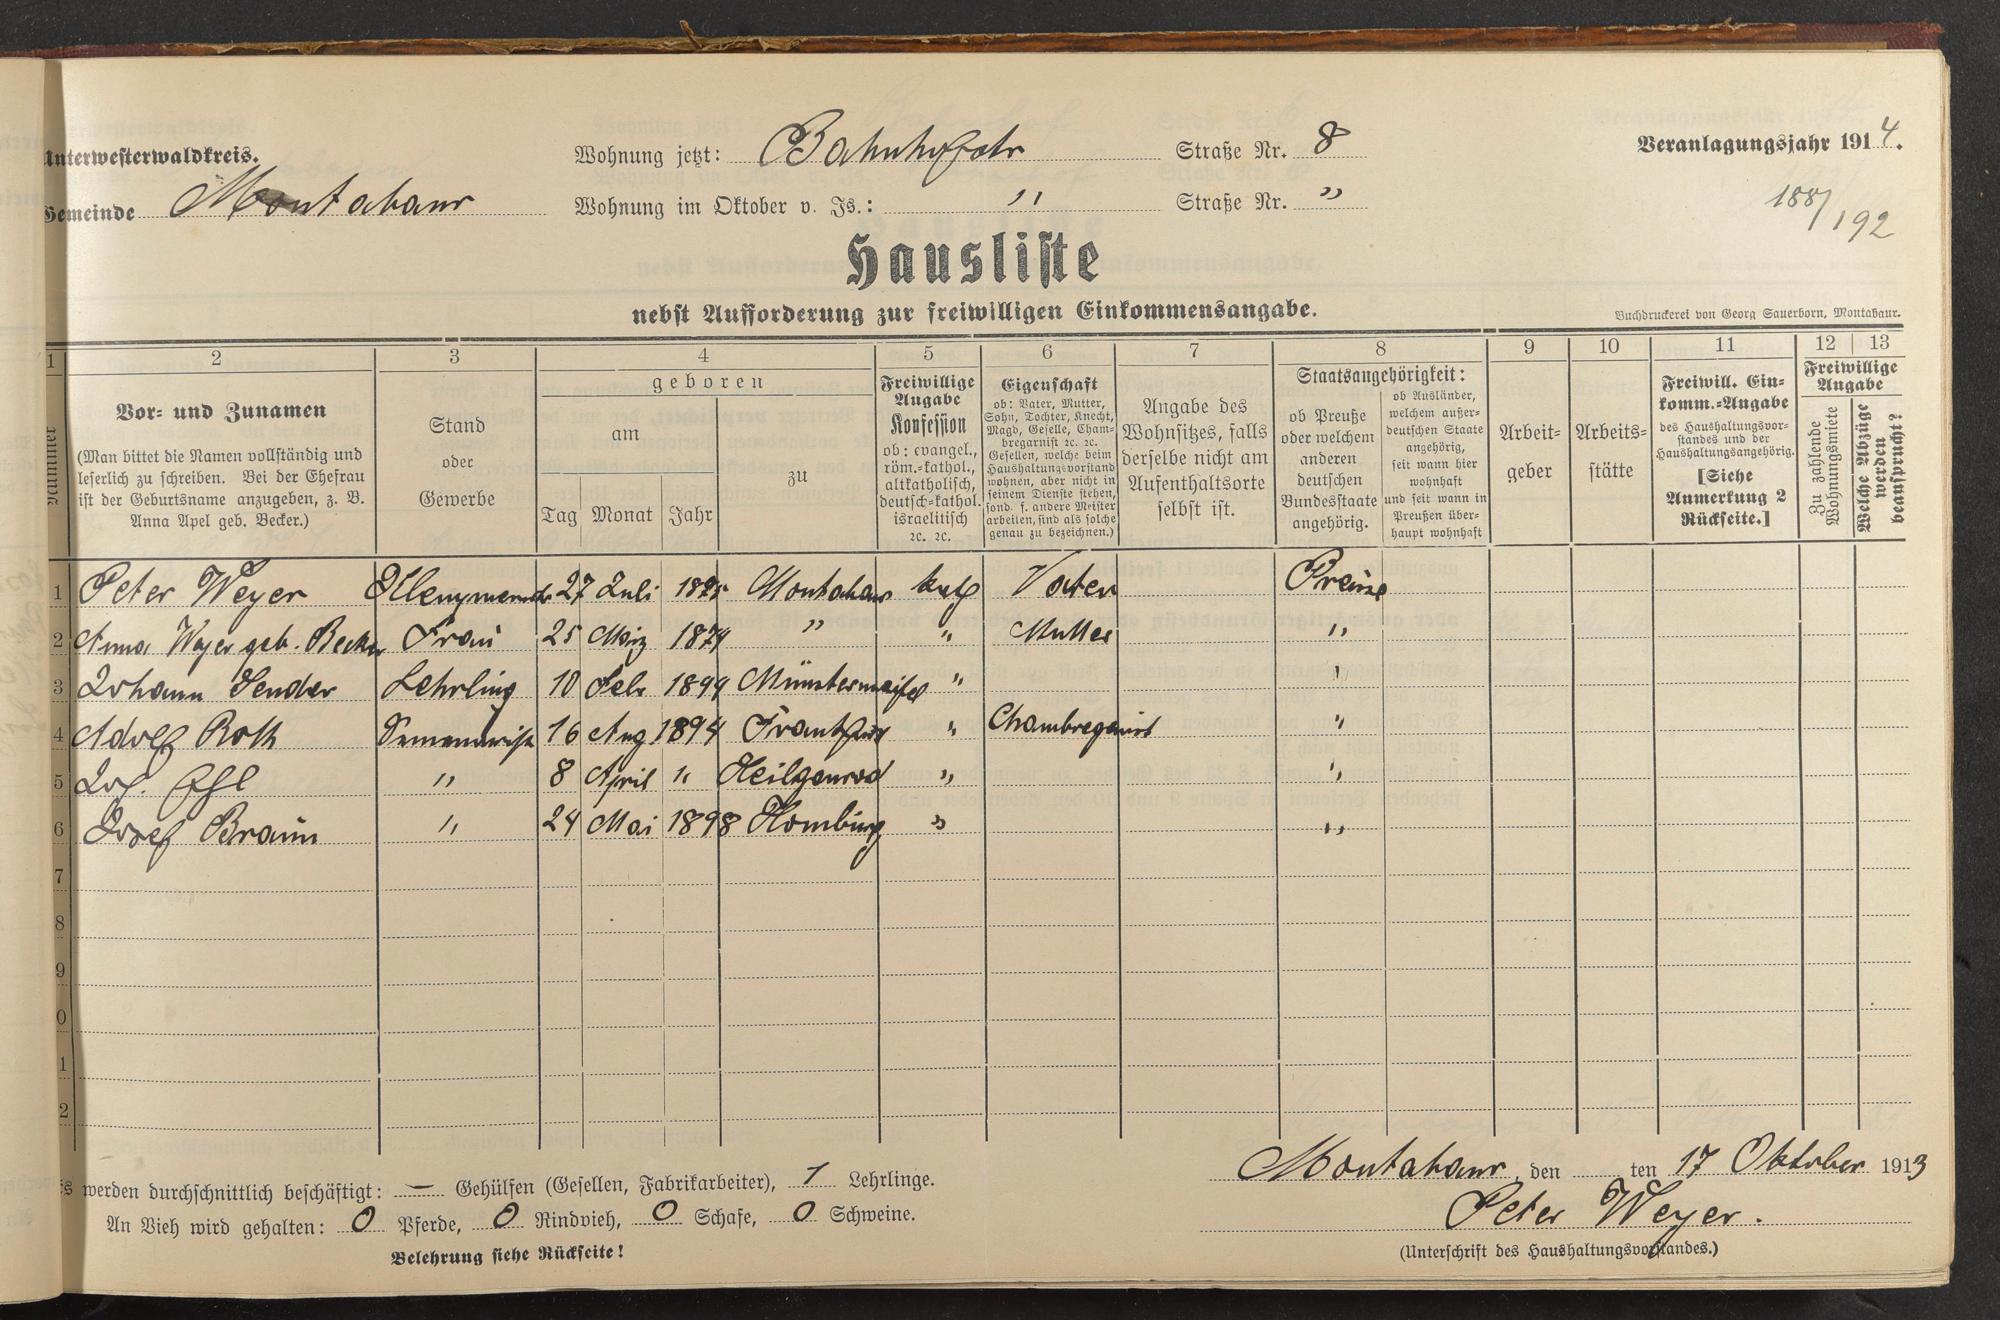 Unterwesterwaldkreis.
Wohnung jetzt: Bahnhofstr Straße Nr. 8
Veranlagungsjahr 1914.
Gemeinde Montabaur
Wohnung im Oktober v. Js.: " Straße Nr. "
188/192
Hausliste
nebst Aufforderung zur freiwilligen Einkommensangabe.
Buchdruckerei von Georg Sauerborn, Montabaur.
1 2 3 4 5 6 7 8 9 10 11 12 13
Nummer
Vor- und Zunamen
(Man bittet die Namen vollständig und
leserlich zu schreiben. Bei der Ehefrau
ist der Geburtsname anzugeben, z. B.
Anna Apel geb. Becker.)
Stand
oder
Gewerbe
geboren
am
Tag Monat Jahr
zu
Freiwillige
Angabe
Konfession
ob: evangel.,
röm.-kathol.,
altkatholisch,
deutsch-kathol.
israelitisch
ꝛc. ꝛc.
Eigenschaft
ob: Vater, Mutter,
Sohn, Tochter, Knecht,
Magd, Geselle, Cham-
bregarnist ꝛc. ꝛc.
Gesellen, welche beim
Haushaltungsvorstand
wohnen, aber nicht in
seinem Dienste stehen,
sond. f. andere Meister
arbeiten, sind als solche
genau zu bezeichnen.)
Angabe des
Wohnsitzes, falls
derselbe nicht am
Aufenthaltsorte
selbst ist.
Staatsangehörigkeit:
ob Preuße
oder welchem
anderen
deutschen
Bundesstaate
angehörig.
ob Ausländer,
welchem außer-
deutschen Staate
angehörig,
seit wann hier
wohnhaft
und seit wann in
Preußen über-
haupt wohnhaft
Arbeit-
geber
Arbeits-
stätte
Freiwill. Ein-
komm.-Angabe
des Haushaltungsvor-
standes und der
Haushaltungsangehörig.
[Siehe
Anmerkung 2
Rückseite.]
Freiwillige
Angabe
Zu zahlende
Wohnungsmiete
Welche Abzüge
werden
beansprucht?
1 Peter Weyer 27 Juli Montabaur kath Vater Preuße
2 Anna Weyer geb. Becker Frau 25 März 1874 " " Mutter "
3 Johann Sender Lehrling 10 Febr 1899 Münstermaifel " "
4 Adolf Roth 16 Aug 1894 Frankfurt " Chambregarnist "
5 Jos. " 8 April " Heilgenrod " "
6 Josef Braun " 24 Mai 1898 Homburg " "
7
8
9
0
1
2
werden durchschnittlich beschäftigt: — Gehülfen (Gesellen, Fabrikarbeiter), 1 Lehrlinge.
An Vieh wird gehalten: 0 Pferde, 0 Rindvieh, 0 Schafe, 0 Schweine.
Belehrung siehe Rückseite!
Montabaur, den ten 17 Oktober 1913
Peter Weyer.
(Unterschrift des Haushaltungsvorstandes.)